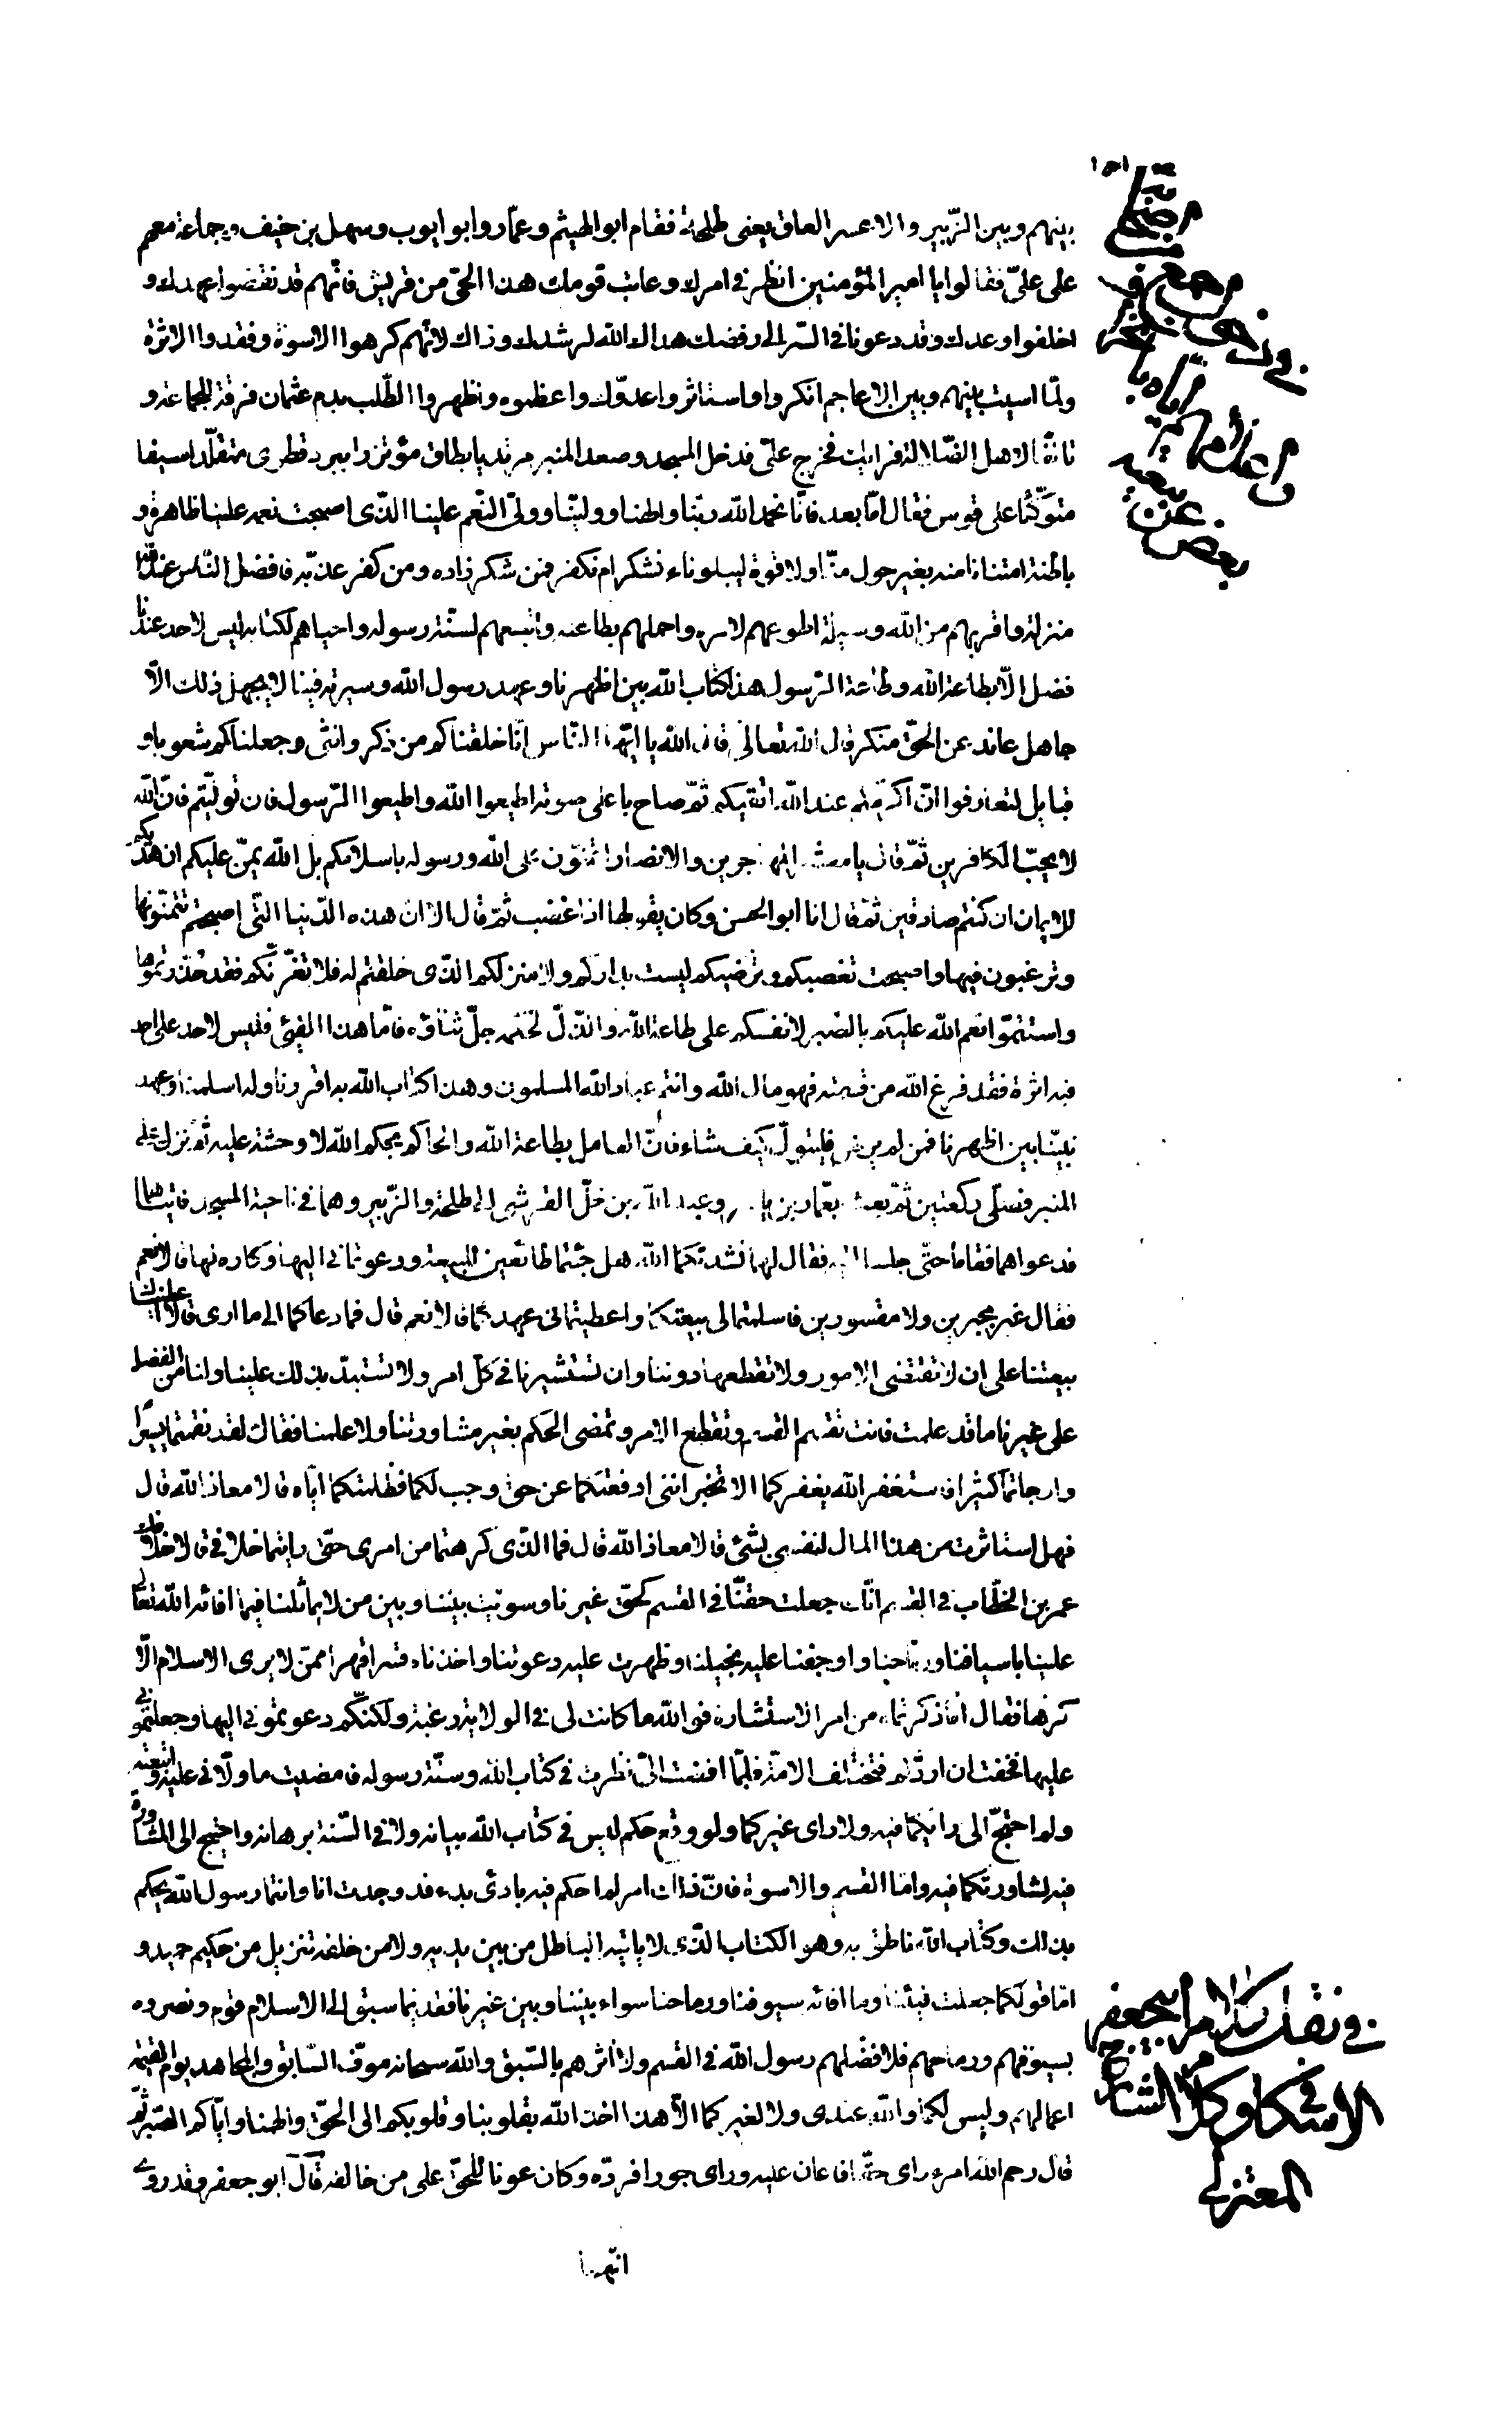 بينهم وبين الزّبير والاعسر العاق يعنى طلحة فقام ابو الهيثم وعمّار وابو ايوب وسهل بن حنيف وجماعة معهم
على علىّ فقالوا يا امير المؤمنين انظر فى امرك وعاتب قومك هذا الحىّ من قريش فانّهم قد نقضوا عهدك و
اخلفوا وعدك وقد دعونا فى السّر الى رفضك هداك الله لرشدك وذاك لانّهم كرهوا الاسوة وفقدوا الاثرة
ولمّا اسيت بينهم وبين الاعاجم انكروا واستاثروا عدوّك واعظموه واظهروا الطّلب بدم عثمان فرقة للجماعة و
تالّفا لاهل الضّلالة فرايك فخرج علىّ فدخل المسجد وصعد المنبر مرتديا بطاق مؤتزرا ببرد قطرى متقلّدا سيفا
متوكّئا على قوس فقال امّا بعد فانّا نحمد الله ربّنا والهنا ووليّنا وولىّ النّعم علينا الّذى اصبحت نعمه علينا ظاهرة و
باطنة امتنانا منه بغير حول منّا ولا قوة ليبلونا ءنشكر ام نكفر فمن شكر زاده ومن كفر عذّبه فافضل النّاس عند الله
منزلة واقربهم من الله وسيلة اطوعهم لامره واعملهم بطاعته واتبعهم لسنّة رسوله واحياهم لكتابه ليس لاحد عندنا
فضل الّا بطاعة الله وطاعة الرّسول هذا كتاب الله بين اظهرنا وعهد رسول الله وسيرته فينا لا يجهل ذلك الّا
جاهل عاند عن الحقّ منكر قال الله تعالى قال الله يا ايّها النّاس انّا خلقناكم من ذكر وانثى وجعلناكم شعوبا و
قبايل لتعارفوا انّ اكرمكم عند الله اتقيكم ثمّ صاح باعلى صوته اطيعوا الله واطيعوا الرّسول فان تولّيتم فانّ الله
لا يحبّ الكافرين ثمّ قال يا معشر المهاجرين والانصار اتمنّون على الله ورسوله باسلامكم بل الله يمنّ عليكم ان هديكم
للايمان ان كنتم صادقين ثمّ قال انا ابو الحسن وكان يقولها اذا غضب ثمّ قال الا ان هذه الدّنيا الّتى اصبحتم تتمنّونها
وترغبون فيها واصبحت تغضبكم وترضيكم ليست بداركم ولا منزلكم الّذى خلقتم له فلا تغرّنّكم فقد حذّرتموها
واستتمّوا نعم الله عليكم بالصّبر لانفسكم على طاعة الله والذّلّ لحكمه جلّ ثناؤه فامّا هذا الفىء فليس لاحد على احد
فيه اثرة فقد فرغ الله من قسمته فهو مال الله وانتم عباد الله المسلمون وهذا كتاب الله به اقررنا وله اسلمنا وعهد
نبيّنا بين اظهرنا فمن لم يرض فليتولّ كيف شاء فانّ العامل بطاعة الله والحاكم بحكم الله لا وحشة عليه ثمّ نزل عن
المنبر فصلّى ركعتين ثمّ بعث بعمّار بن ياسر وعبد الله بن خلّ القرشى الى طلحة والزّبير وهما فى ناحية المسجد فاتياهما
فدعواهما فقاما حتّى جلسا اليه فقال لهما نشدتكما الله هل جئتما طائعين للبيعة ودعوتمانى اليها وكاره لها قالا نعم
فقال غير مجبرين ولا مقسورين فاسلمتما لى بيعتكما واعطيتمانى عهدكما قالا نعم قال فما دعاكما الى ما ارى قالا اعطيناك
بيعتنا على ان لا تقتضى الامور ولا تقطعها دوننا وان تستشيرنا فى كلّ امر ولا تستبدّ بذلك علينا ولنا من الفضل
على غيرنا ما قد علمت فانت تقسم القسم وتقطع الامر وتمضى الحكم بغير مشاورتنا ولا علمنا فقال لقد نقمتما يسيرا
وارجاتما كثيرا فاستغفر الله يغفر لكما الا تخبراننى ادفعتكما عن حق وجب لكما فظلمتكما ايّاه قالا معاذ الله قال
فهل استاثرت من هذا المال لنفسى بشىء قالا معاذ الله قال فما الّذى كرهتما من امرى حتّى رايتما خلافى قالا خلافك
عمر بن الخطّاب فى القسم انّك جعلت حقّنا فى القسم كحقّ غيرنا وسوّيت بيننا وبين من لا يماثلنا فيما افائه الله تعالى
علينا باسيافنا ورماحنا واوجفنا عليه بخيلنا وظهرت عليه دعوتنا واخذناه قسرا قهرا ممّن لا يرى الاسلام الّا
كرها فقال امّا ذكرتماه من امر الاستشارة فوالله ما كانت لى فى الولاية رغبة ولكنّكم دعوتمونى اليها وجعلتمونى
عليها فخفت ان اردّكم فتختلف الامّة فلمّا افضت الىّ نظرت فى كتاب الله وسنّة رسوله فامضيت ما دلّانى عليه واتبعته
ولم احتج الى رايكما فيه ولا راى غيركما ولو وقع حكم ليس فى كتاب الله بيانه ولا فى السّنة برهانه واحتيج الى المشاورة
فيه لشاورتكما فيه وامّا القسم والاسوة فانّ ذلك امر لم احكم فيه بادئ بدء قد وجدت انا وانتما رسول الله يحكم
بذلك وكتاب الله ناطق به وهو الكتاب الّذى لا ياتيه الباطل من بين يديه ولا من خلفه تنزيل من حكيم حميد و
امّا قولكما جعلت فيئنا وما افائه سيوفنا ورماحنا سواء بيننا وبين غيرنا فقديما سبق الى الاسلام قوم ونصروه
بسيوفهم ورماحهم فلا فضّلهم رسول الله فى القسم ولا اثرهم بالسّبق والله سبحانه موفّ السّابق والمجاهد يوم القيمة
اعمالهم وليس لكما والله عندى ولا لغيركما الّا هذا اخذ الله بقلوبنا وقلوبكم الى الحقّ والهمنا وايّاكم الصّبر ثمّ
قال رحم الله امرء راى حقّا فاعان عليه وراى جورا فردّه وكان عونا للحقّ على من خالفه قال ابو جعفر وقد روى
انّهما
فى نقل كلام ابى جعفر
الاسكافى وكلام الشارح
المعتزلى